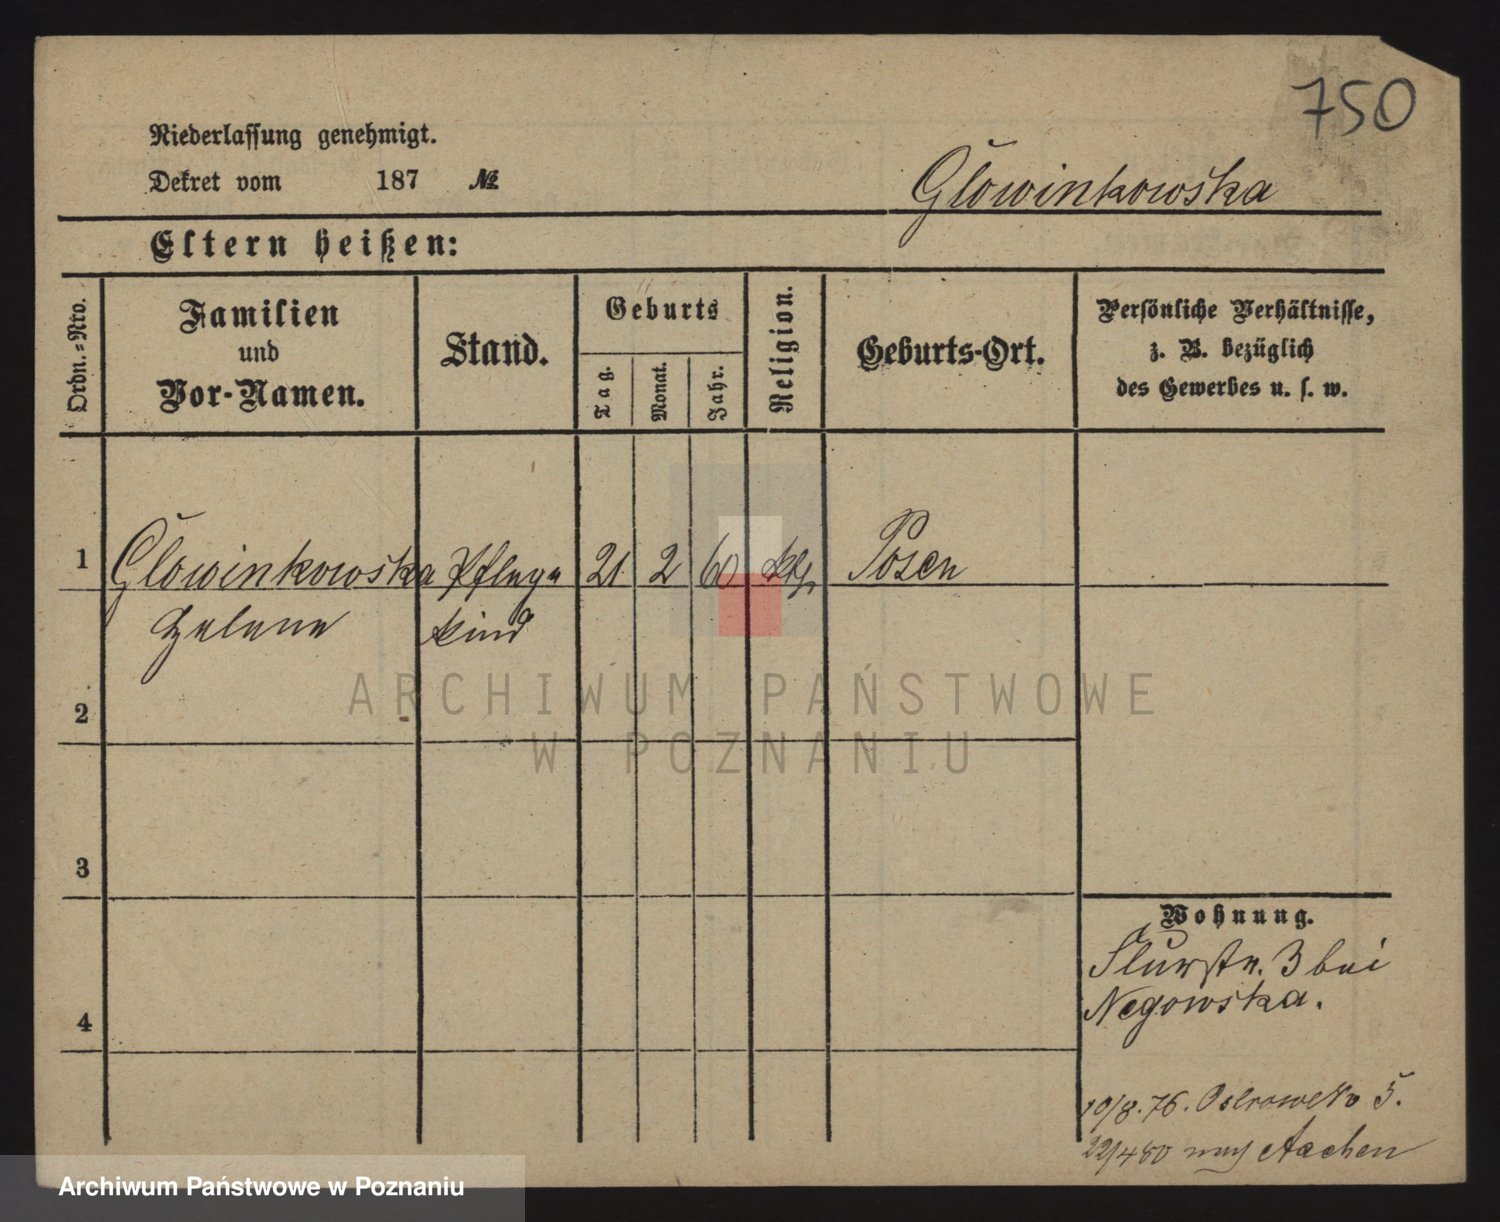 750
Niederlassung genehmigt.
Dekret vom 187 №
Glowinkowska
Eltern heißen:
Ordn.-Nro.
Familien
und
Vor-Namen.
Stand.
Geburts
Tag.
Monat.
Jahr.
Religion.
Geburts-Ort.
Persönliche Verhältnisse,
z. B. bezüglich
des Gewerbes u. s. w.
1 Glowinkowska Pflege 21 2 60 kth Posen
Helene kind
2
3
4
Wohnung.
Flurstr. 3 bei
Negowska.
10/8.76. Ostrowek 5.
22/4 80 nach Aachen
ARCHIWUM PAŃSTWOWE
W POZNANIU
Archiwum Państwowe w Poznaniu